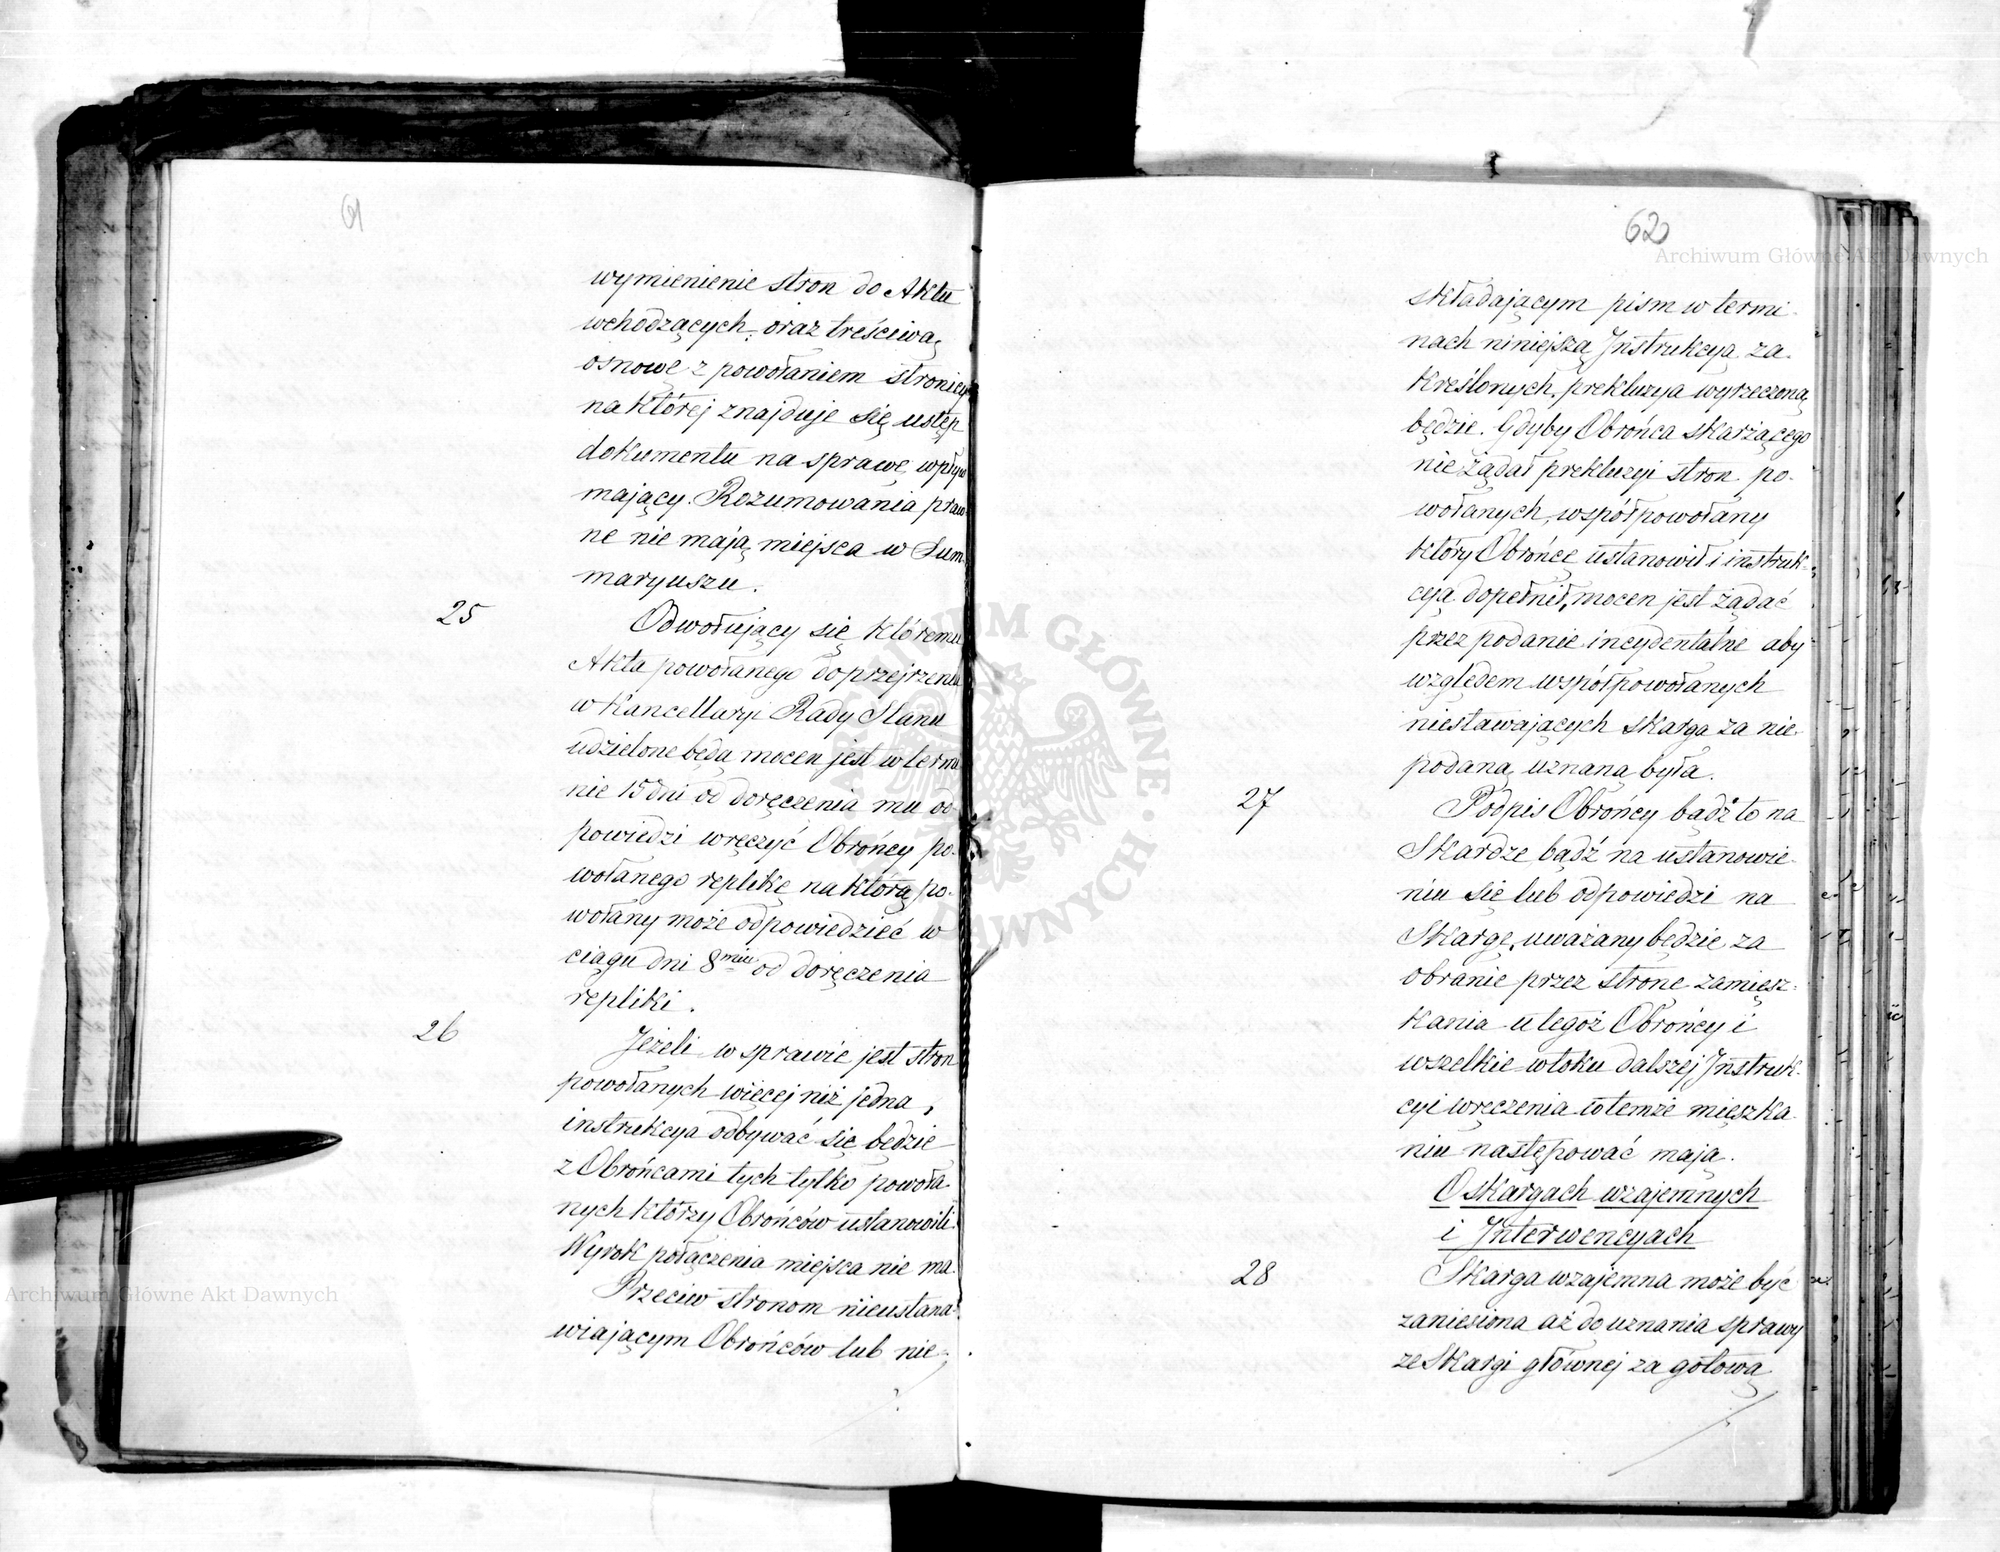 61
wymienienie stron do Aktu
wchodzących, oraz treściwą
osnowę z powołaniem stronicy
na której znajduje się ustęp
dokumentu na sprawę wpływ
mający. Rozumowania praw
ne nie mają miejsca w Sum
maryuszu.
25
Odwołujący się któremu
Akta powołanego do przejrzenia
w Kancellaryi Rady Stanu
udzielone będą mocen jest w termi
nie 15 dni od doręczenia mu od
powiedzi wręczyć Obrońcy po-
wołanego replikę na którą po-
wołany może odpowiedzieć w
ciągu dni 8miu od doręczenia
repliki.
26
Jeżeli w sprawie jest stron
powołanych więcej niż jedna,
instrukcya odbywać się będzie
z Obrońcami tych tylko powoła-
nych którzy Obrońców ustanowili.
Wyrok połączenia miejsca nie ma.
Przeciw stronom nieustana-
wiającym Obrońców lub nie
62
składającym pism w termi-
nach niniejszą Instrukcyą za-
kreślonych, prekluzya wyrzeczoną
będzie. Gdyby Obrońca skarżącego
nie żądał prekluzyi stron po-
wołanych, współpowołany
który Obrońcę ustanowił i instruk-
cyą dopełnił, mocen jest żądać
przez podanie incydentalne aby
względem współpowołanych
niestawających skarga za nie-
podaną uznaną była.
27
Podpis Obrońcy bądź to na
Skardze bądź na ustanowie-
niu się lub odpowiedzi na
Skargę, uważany będzie za
obranie przez stronę zamiesz-
kania u tegoż Obrońcy i
wszelkie w toku dalszej Instruk-
cyi wręczenia w temże mieszka-
niu następować mają.
O skargach wzajemnych
i Interwencyach
28
Skarga wzajemna może być
zaniesiona aż do uznania sprawy
ze Skargi głównej za gotową
Archiwum Główne Akt Dawnych
Archiwum Główne Akt Dawnych
ARCHIWUM GŁÓWNE AKT DAWNYCH